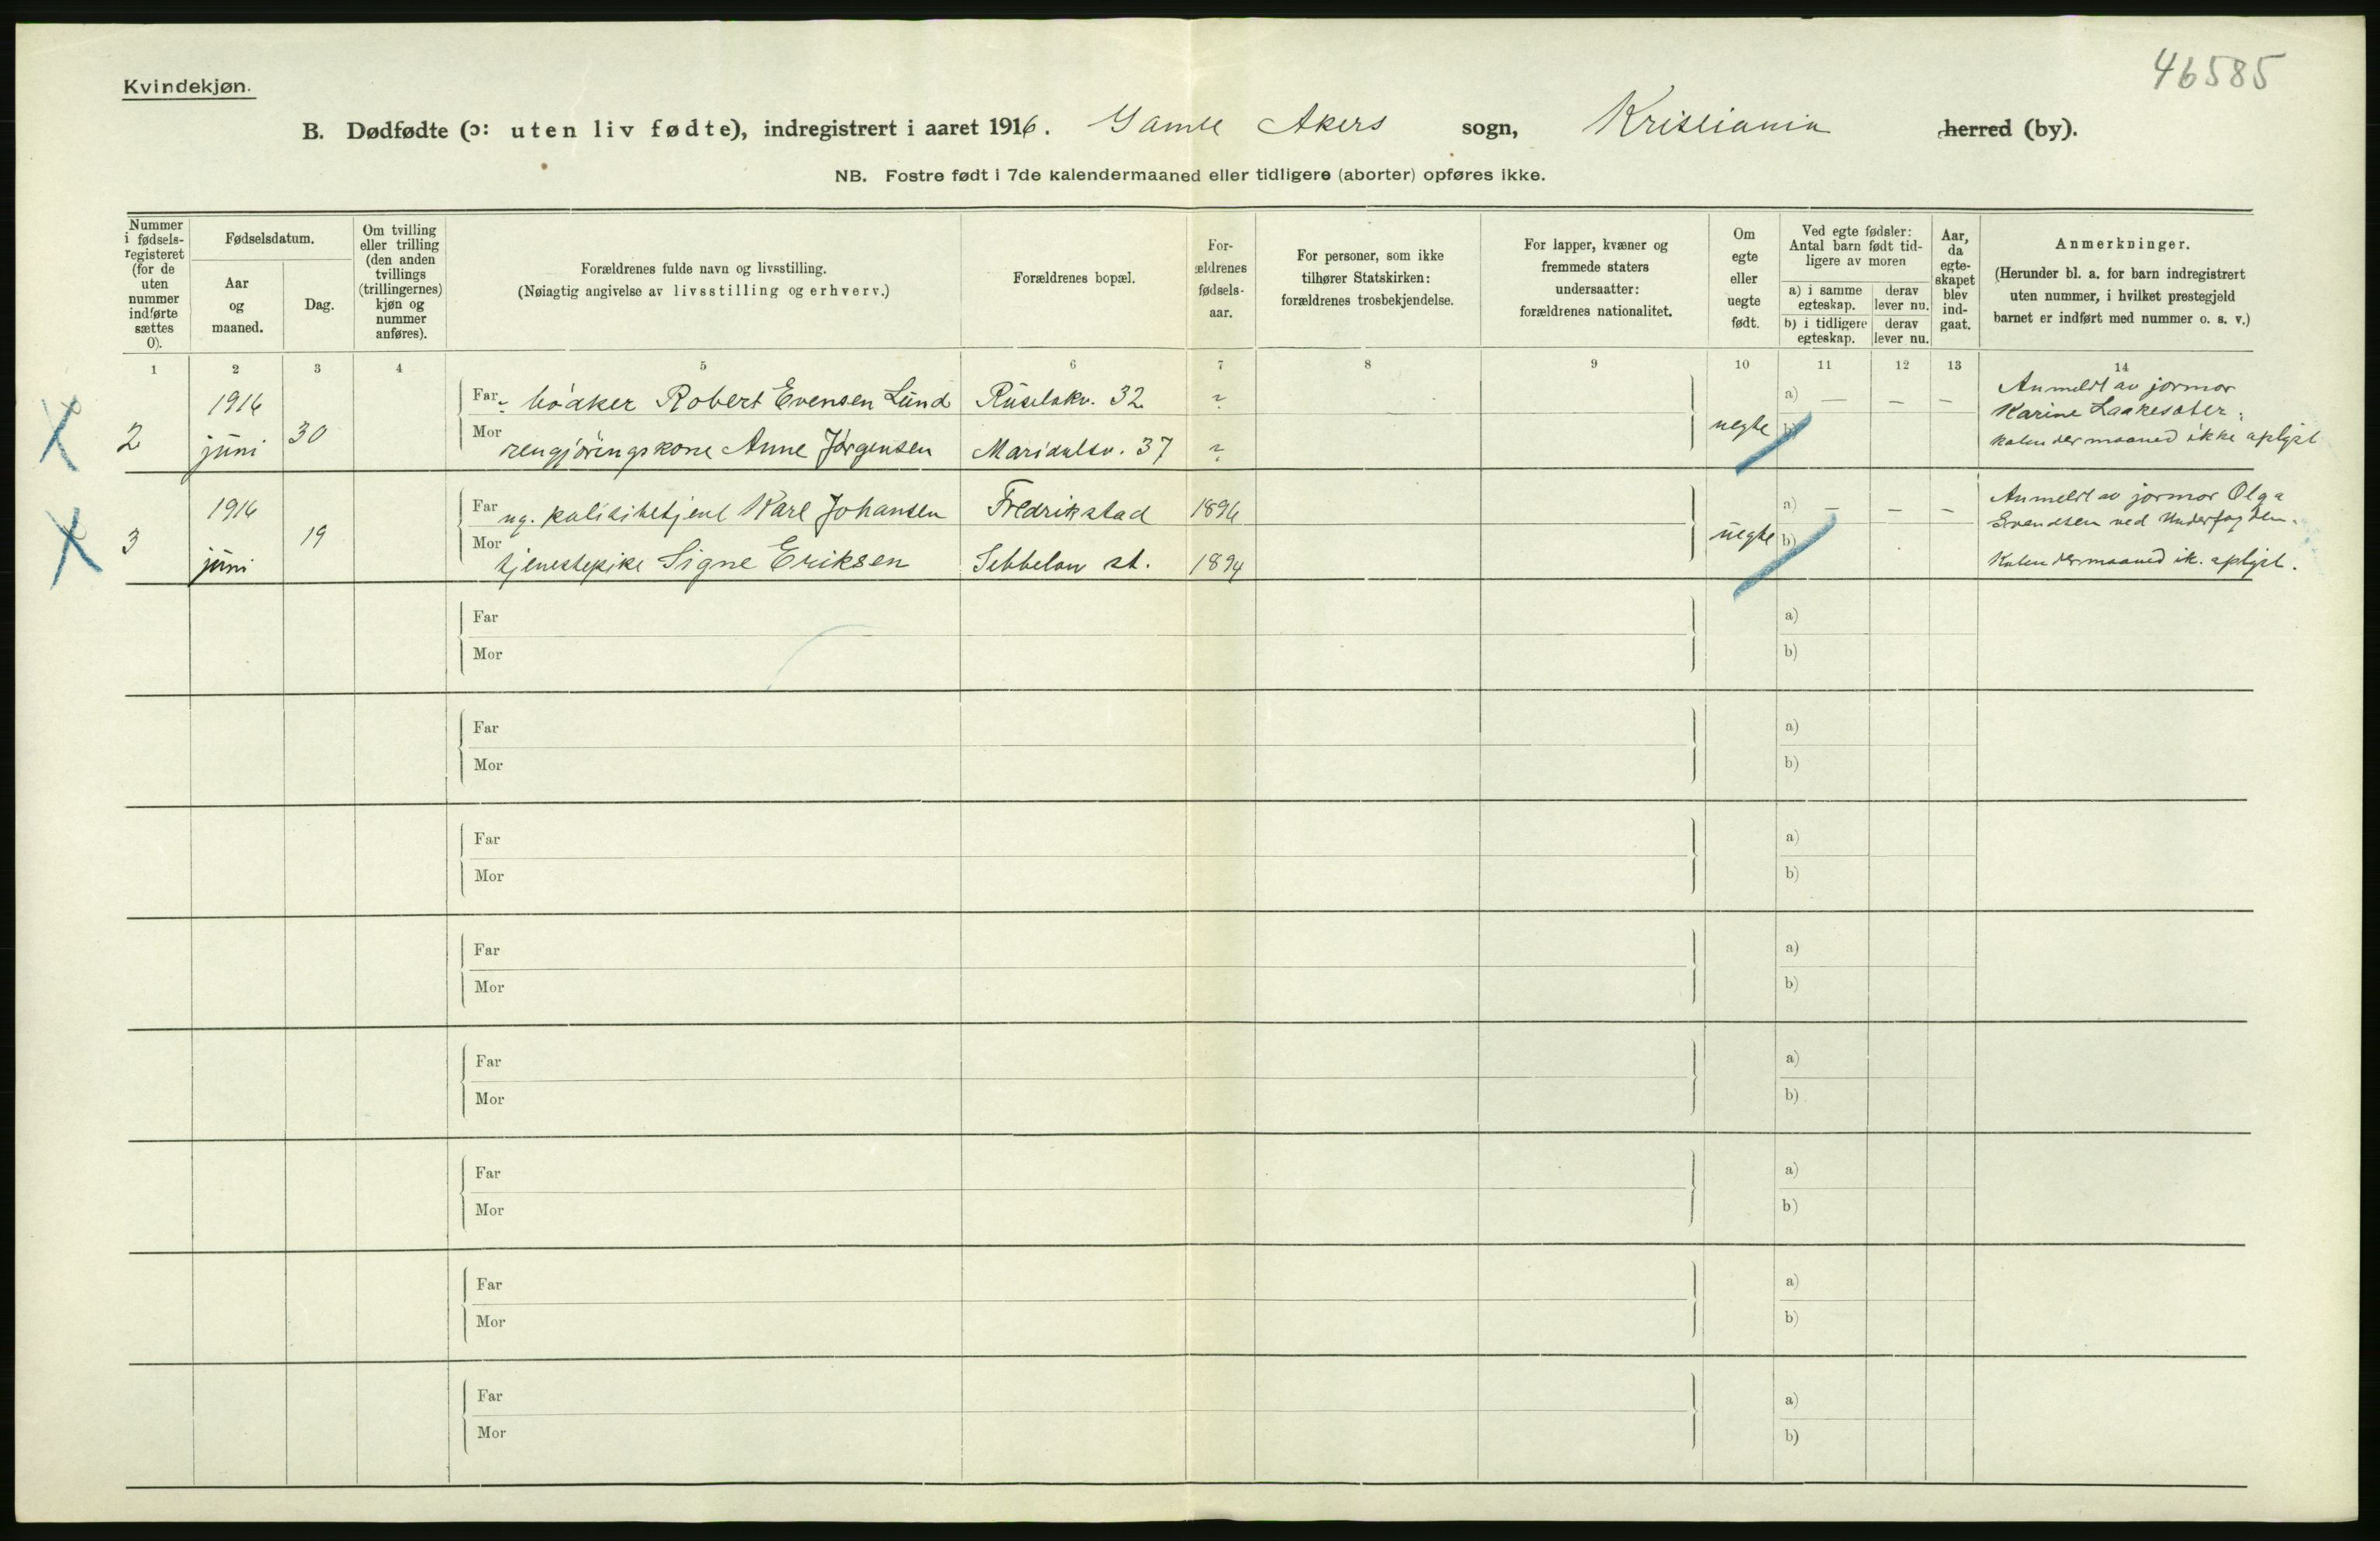 46585
Kvindekjøn.
B. Dødfødte (ɔ: uten liv fødte), indregistrert i aaret 1916. Gamle Akers sogn, Kristiania herred (by).
NB. Fostre født i 7de kalendermaaned eller tidligere (aborter) opføres ikke.
Nummer i fødsels-registeret (for de uten nummer indførte sættes 0).
Fødselsdatum.
Aar og maaned.
Dag.
Om tvilling eller trilling (den anden tvillings (trillingernes) kjøn og nummer anføres).
Forældrenes fulde navn og livsstilling.
(Nøiagtig angivelse av livsstilling og erhverv.)
Forældrenes bopæl.
For-ældrenes fødsels-aar.
For personer, som ikke tilhører Statskirken: forældrenes trosbekjendelse.
For lapper, kvæner og fremmede staters undersaatter: forældrenes nationalitet.
Om egte eller uegte født.
Ved egte fødsler: Antal barn født tid-ligere av moren
a) i samme egteskap. derav lever nu.
b) i tidligere egteskap. derav lever nu.
Aar, da egte-skapet blev ind-gaat.
Anmerkninger.
(Herunder bl. a. for barn indregistrert uten nummer, i hvilket prestegjeld barnet er indført med nummer o. s. v.)
1 2 3 4 5 6 7 8 9 10 11 12 13 14
2 1916 juni 30
Far Robert Evensen Lund 32 ? a) — — —
Mor rengjöringskone Anne Jörgensen Maridalsv. 37 ? uegte b)
Anmeldt av jormor
Karine
kalendermaaned ikke oplyst
3 1916 juni 19
Far ug. Karl Johansen Fredrikstad 1896 a) — — —
Mor tjenestepike Signe Eriksen st. 1894 uegte b)
Anmeldt av jormor Olga
Svendsen ved
Kalendermaaned ik. oplyst.
Far a)
Mor b)
Far a)
Mor b)
Far a)
Mor b)
Far a)
Mor b)
Far a)
Mor b)
Far a)
Mor b)
Far a)
Mor b)
Far a)
Mor b)